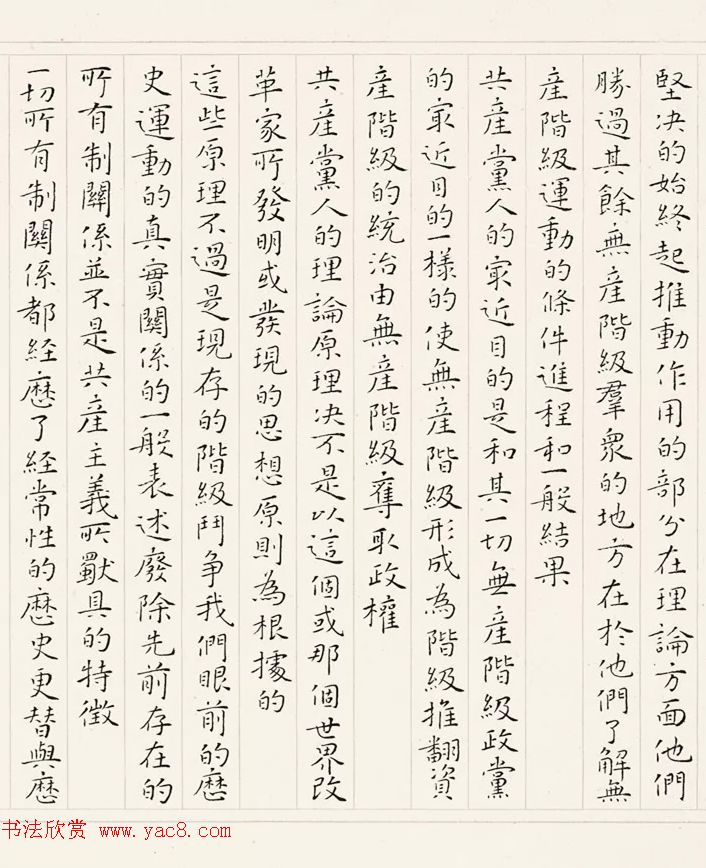 堅决的始終起推動作用的部分在理論方面他們
勝過其餘無産階級羣衆的地方在於他們了解無
産階級運動的條件進程和一般結果
共産黨人的冣近目的是和其一切無産階級政黨
的冣近目的一樣的使無産階級形成為階級推翻資
産階級的統治由無産階級奪取政權
共産黨人的理論原理决不是以這個或那個世界改
革家所發明或發現的思想原則為根據的
這些原理不過是現存的階級鬥争我們眼前的歷
史運動的真實關係的一般表述廢除先前存在的
所有制關係並不是共産主義所獻具的特徵
一切所有制關係都経歷了経常性的歷史更替與歷
书法欣赏 www.yac8.com